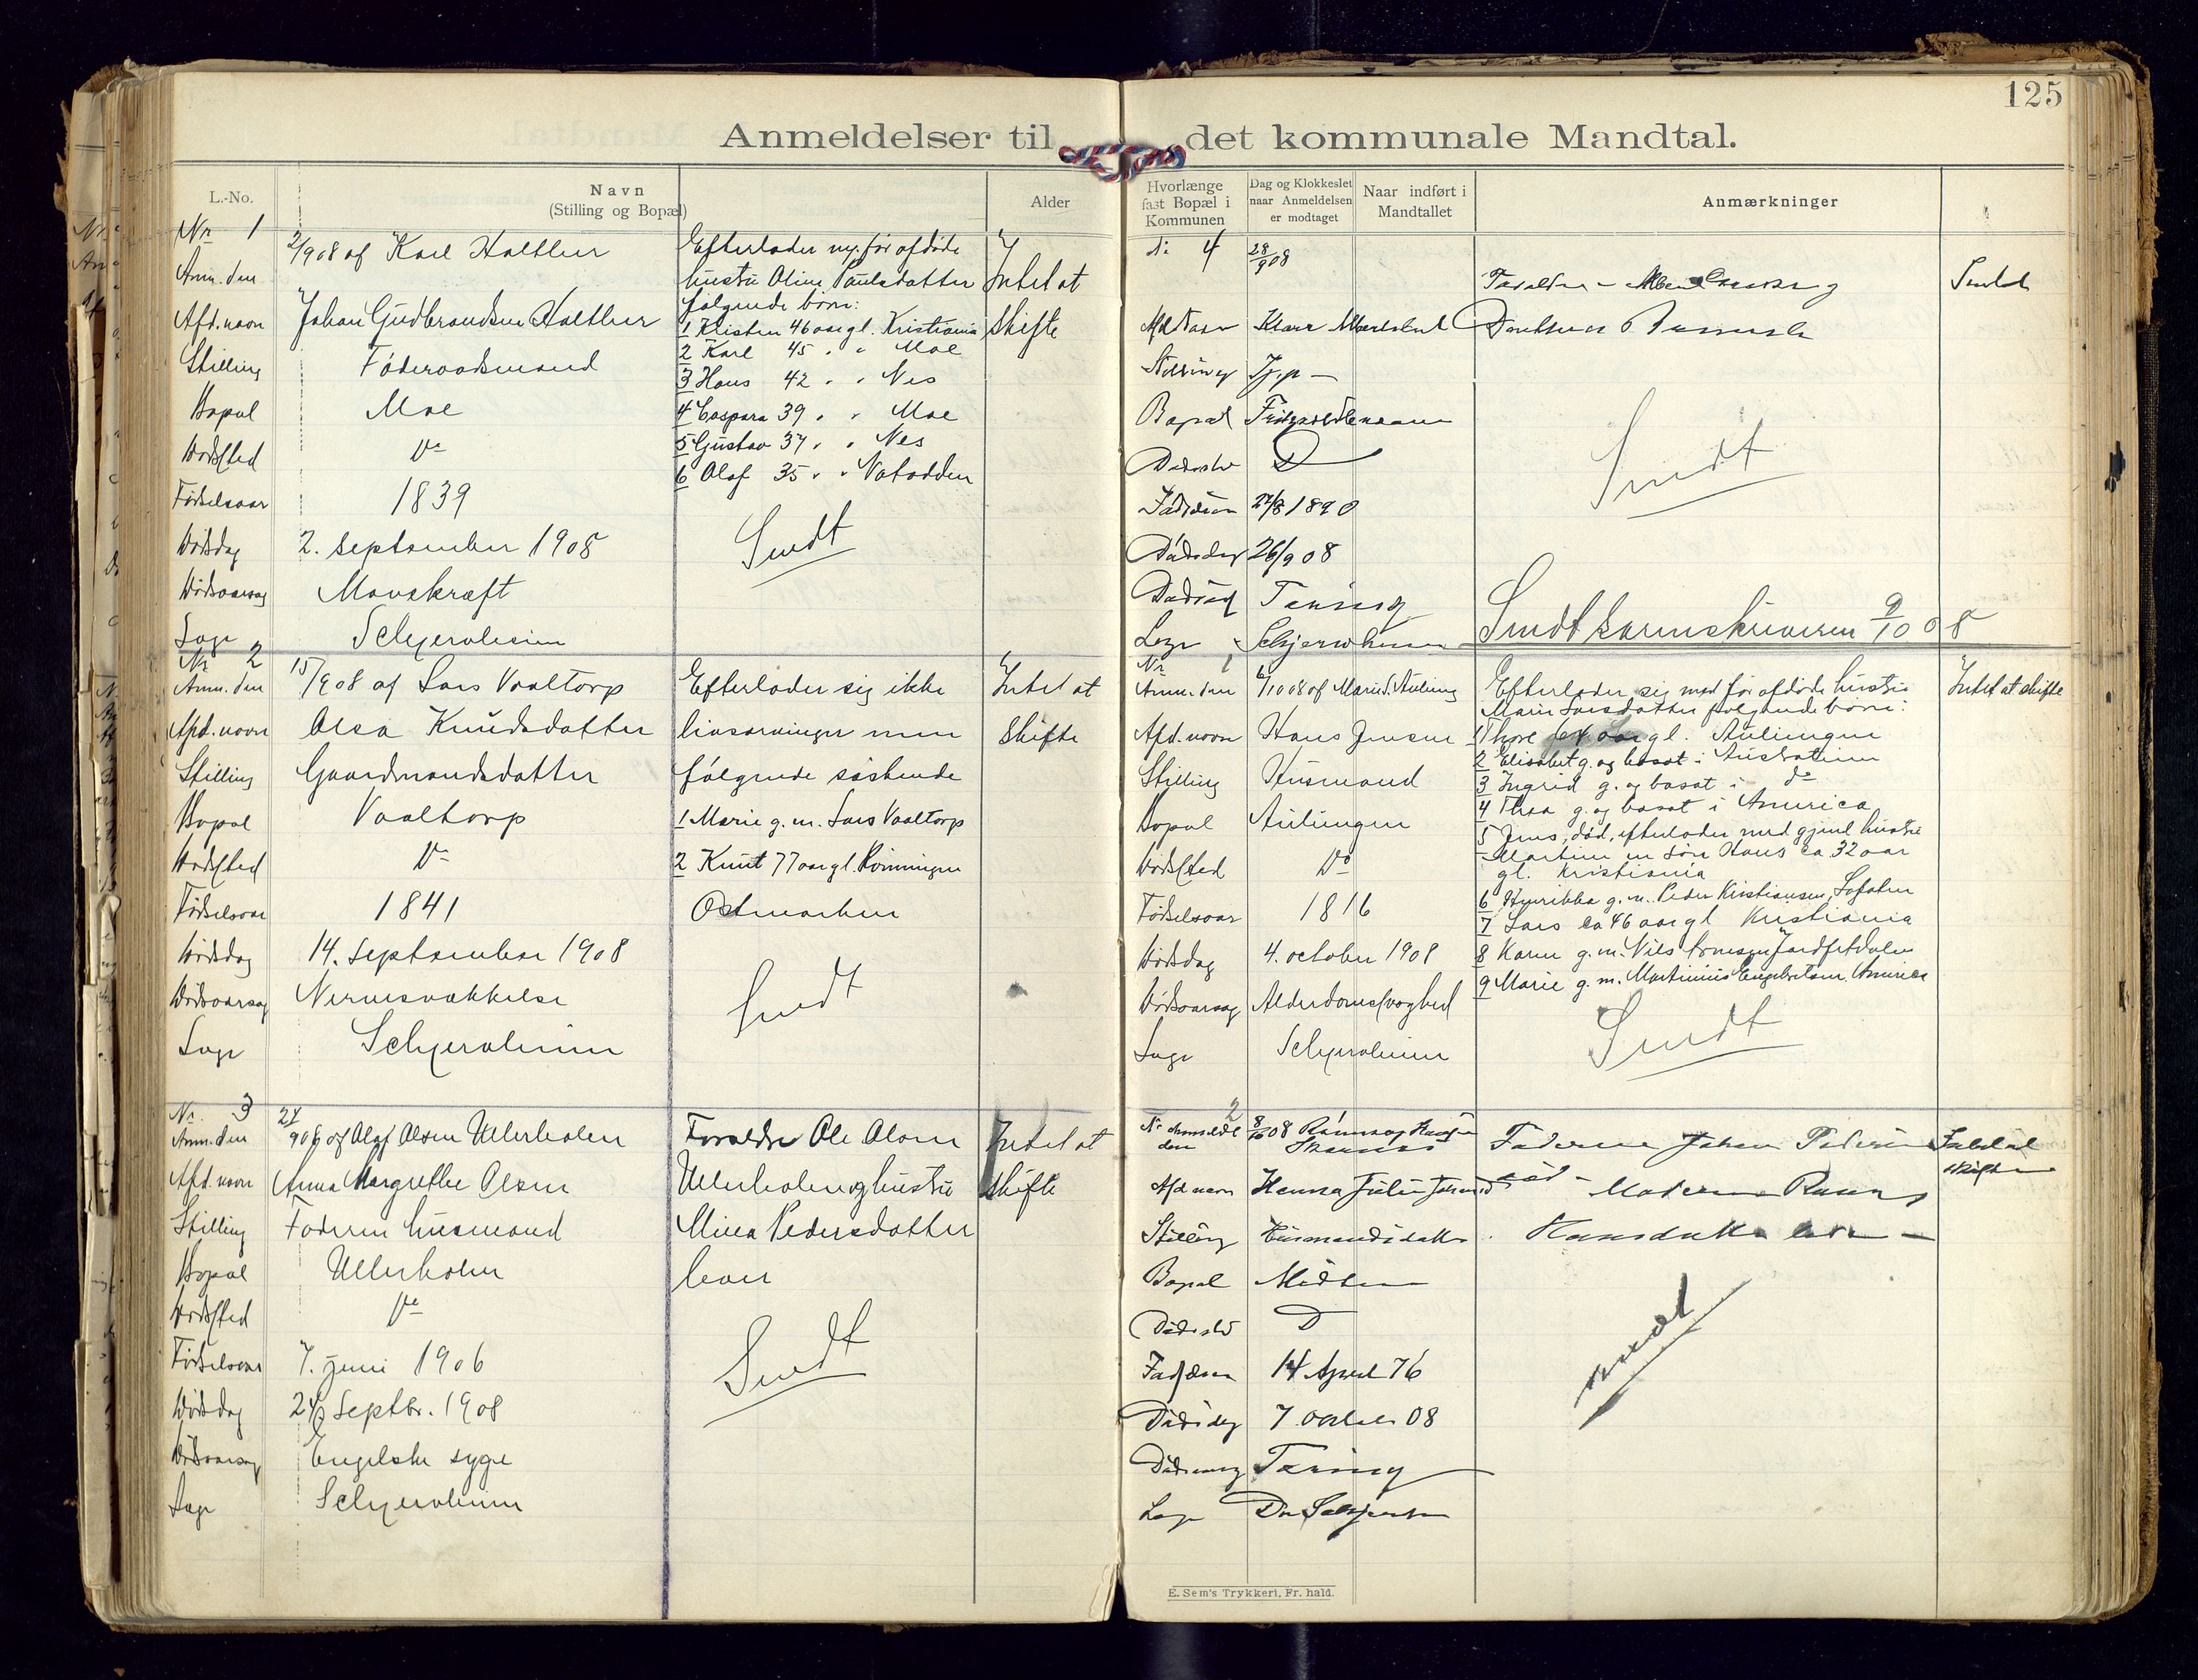 125
Anmeldelser til det kommunale Mandtal.
L.-No.
Navn
(Stilling og Bopæl)
Alder
Nr 1
Anm. den 2/9 08 af Karl Haltbur
Afd. navn Johan Gudbrandsen Haltbur
Stilling Føderaadsmand
Bopæl Moe
Dødssted Do
Fødselsaar 1839
Dødsdag 2. september 1908
Dødsaarsag Mavekræft
Læge Schjervheim
Efterlader mg. før afdøde
hustru Oline Paulsdatter
følgende børn:
1 Kristen 46 aar gl. Kristiania
2 Karl 45 " " Moe
3 Hans 42 " " Nes
4 Caspara 39 " " Moe
5 Gustav 37 " " Nes
6 Olaf 35 " " Notodden
Sendt
Intet at
skifte
Nr 2
Anm. den 15/9 08 af Lars Vaaltorp
Afd. navn Olea Knudsdatter
Stilling Gaardmandsdatter
Bopæl Vaaltorp
Dødssted Do
Fødselsaar 1841
Dødsdag 14. september 1908
Dødsaarsag Nervesvækkelse
Læge Schjervheim
Efterlader sig ikke
livsarvinger men
følgende søskende
1 Marie g. m. Lars Vaaltorp
2 Knut 77 aar gl. Rønningen
Østmarken
Sendt
Intet at
skifte
Nr. 3
Anm. den 24/9 08 af Olaf Olsen Ullerholen
Afd. navn Anna Margrethe Olsen
Stilling Faderen husmand
Bopæl Ullerholen
Dødssted Do
Fødselsaar 7. juni 1906
Dødsdag 24/9 Septbr. 1908
Dødsaarsag Engelske syge
Læge Schjervheim
Forældre Ole Olsen
Ullerholen og hustru
Mina Pedersdatter
lever
Sendt
Intet at
skifte
Hvorlænge
fast Bopæl i
Kommunen
Dag og Klokkeslet
naar Anmeldelsen
er modtaget
Naar indført i
Mandtallet
Anmærkninger
Nr 4 28/9 08
Afd Navn
Stilling
Bopæl
Dødsted D
27/8 1890
Dødsdag 26/9 08
Tæring
Læge Schjervheim
Sendt
Sendt Sorenskriveren 9/10 08
Nr 1
Anm. den 6/10 08 af Marie S. Aulung
Afd. navn Hans Jensen
Stilling Husmand
Bopæl Aulungen
Dødssted Do
Fødselsaar 1816
Dødsdag 4. october 1908
Dødsaarsag Alderdomssvaghed
Læge Schjervheim
Efterlader sig med før afdøde hustru
Marie Larsdatter følgende børn:
1 Thore 64 aar gl. Aulungen
2 Elisabet g. og bosat i Australien
3 Ingrid g. og bosat i do
4 Thea g. og bosat i America
5 Jens, død, efterlader med gjenl. hustru
Martine en søn Hans ca 32 aar
gl. Kristiania
6 Henrikka g. m. Peder Kristiansen,
7 Lars ca 46 aar gl Kristiania
8 Karen g. m. Nils
9 Marie g. m. Martinius Engebretsen America
Sendt
Intet at skifte
2
Nr Anmeldt 8/10 08
den
Afd navn Hanna Julie
Stilling Husmandsdatter
Bopæl
Dødsted D
14 April 76
Dødsdag 7 october 08
Tæring
Læge Dr
Faderen Johan Pedersen
død - Moderen
Hansdatter lever
Sendt
Intet at
skifte
E. Sem's Trykkeri, Fr. hald.